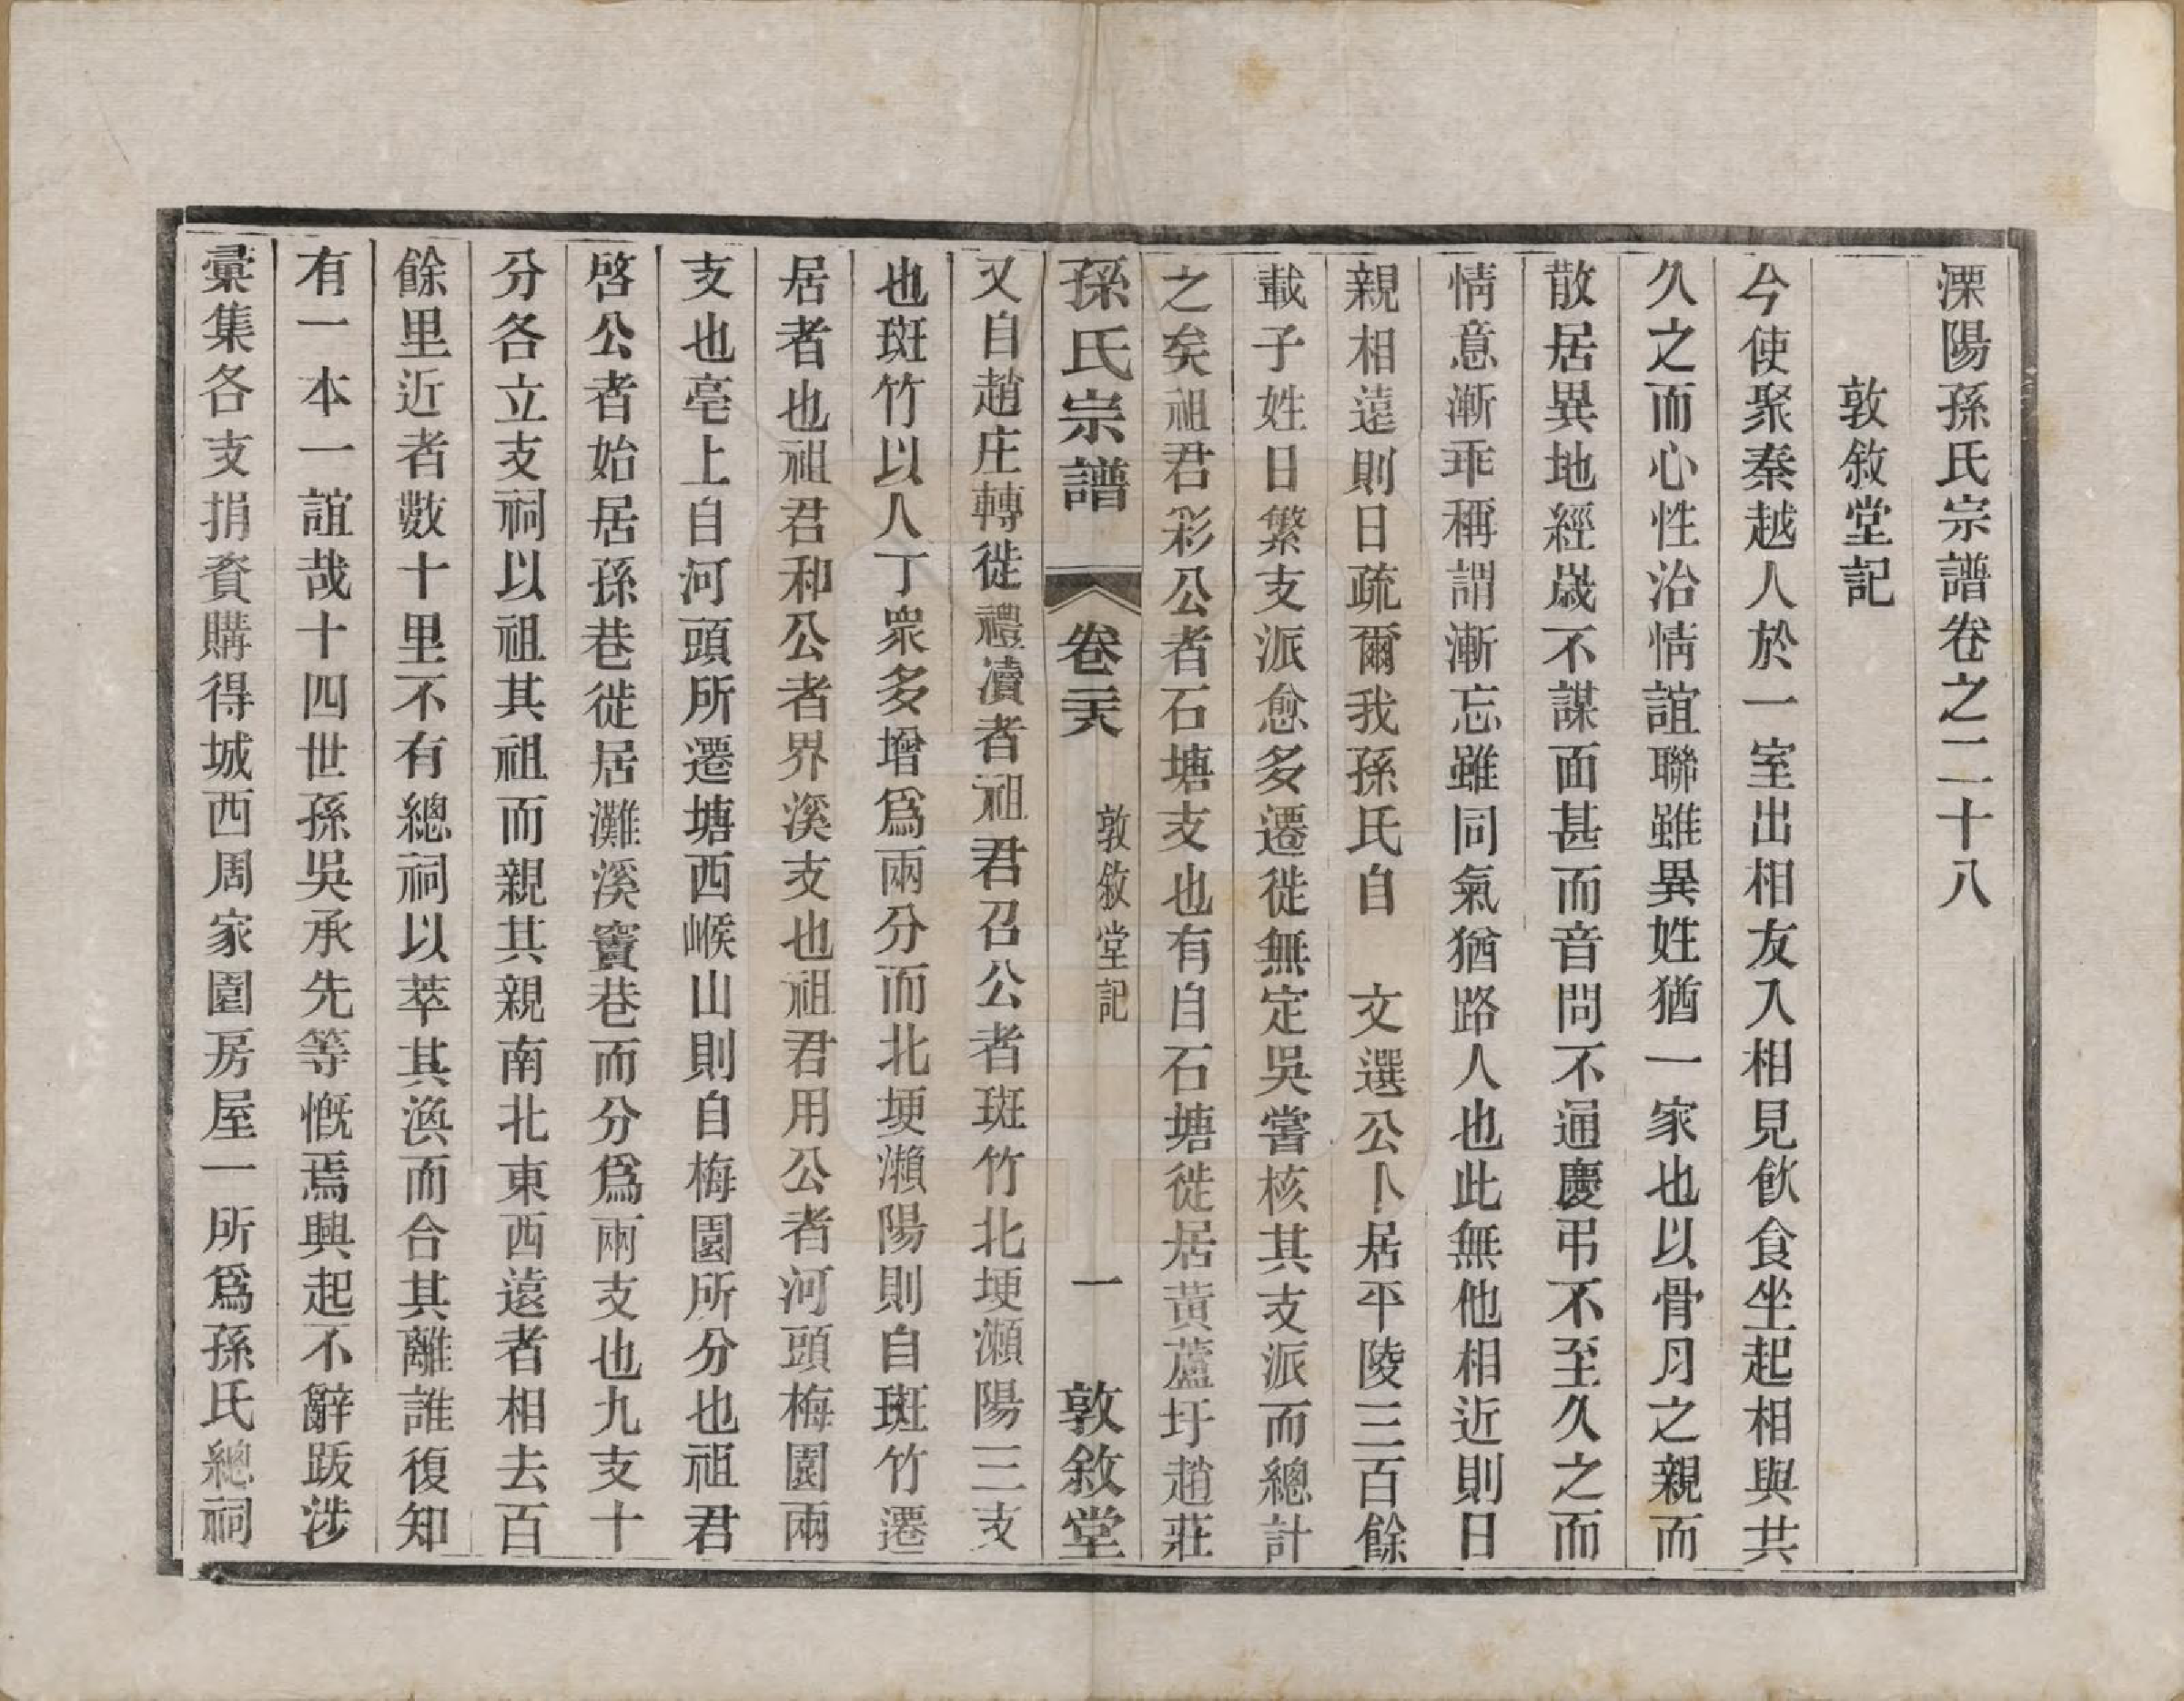 溧陽孫氏宗譜卷之二十八
敦敘堂記
今使聚秦越人於一室出相友入相見飲食坐起相與共
久之而心性洽情誼聯雖異姓猶一家也以骨月之親而
散居異地經歲不謀面甚而音問不通慶弔不至久之而
情意漸乖稱謂漸忘雖同氣猶路人也此無他相近則日
親相遠則日疏爾我孫氏自　文選公卜居平陵三百餘
載子姓日繁支派愈多遷徙無定吳嘗核其支派而總計
之矣祖君彩公者石塘支也有自石塘徙居黃蘆圩趙莊
孫氏宗譜　卷二十八　敦敘堂記　一　敦敘堂
又自趙庄轉徙禮瀆者祖君召公者斑竹北埂瀨陽三支
也斑竹以人丁衆多增爲兩分而北埂瀨陽則自斑竹遷
居者也祖君和公者界溪支也祖君用公者河頭梅園兩
支也亳上自河頭所遷塘西嵠山則自梅園所分也祖君
啓公者始居孫巷徙居灘溪竇巷而分爲兩支也九支十
分各立支祠以祖其祖而親其親南北東西遠者相去百
餘里近者數十里不有總祠以萃其渙而合其離誰復知
有一本一誼哉十四世孫吳承先等慨焉興起不辭跋涉
彙集各支捐資購得城西周家園房屋一所爲孫氏總祠